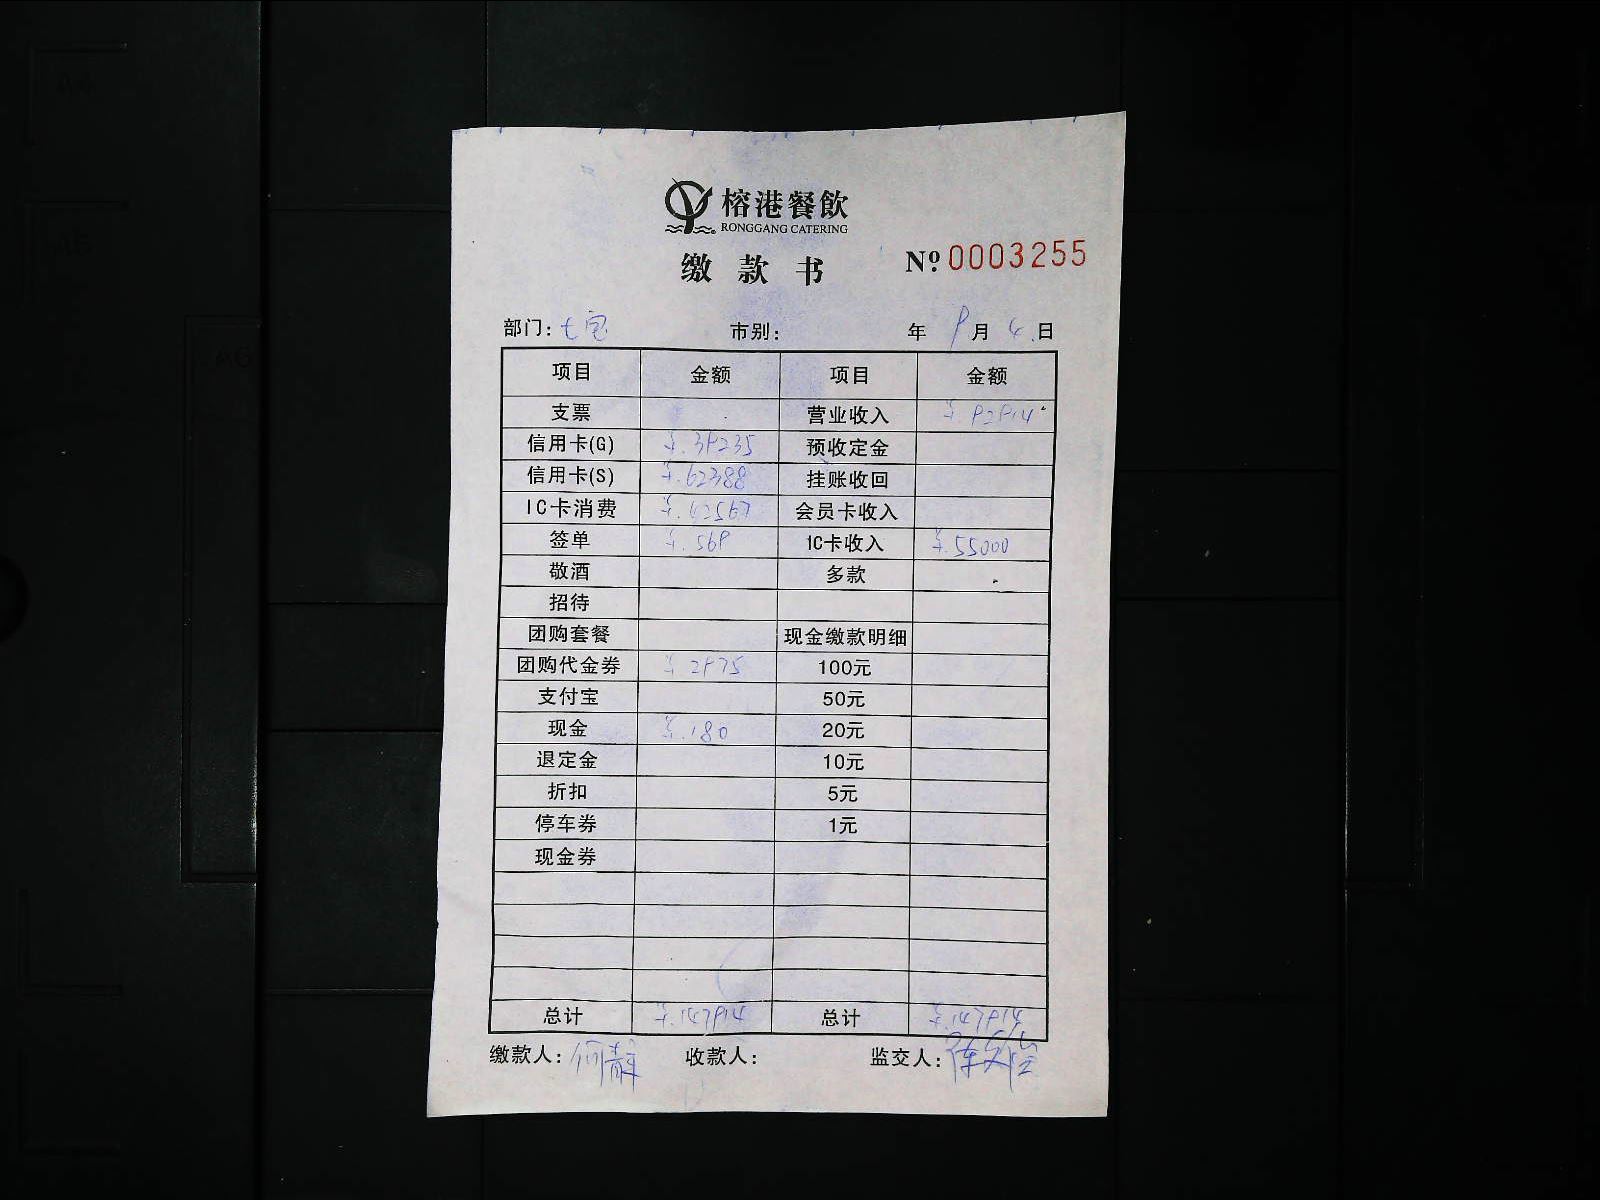 榕港餐飲
RONGGANG CATERING
缴款书 Nº 0003255
部门: 七宝 市别: 年 9 月 4 日
项目 金额 项目 金额
支票 营业收入 ¥.92914
信用卡(G) ¥.39235 预收定金
信用卡(S) ¥.62388 挂账收回
IC卡消费 ¥.42567 会员卡收入
签单 ¥.569 IC卡收入 ¥.55000
敬酒 多款
招待
团购套餐 现金缴款明细
团购代金券 ¥.2975 100元
支付宝 50元
现金 ¥.180 20元
退定金 10元
折扣 5元
停车券 1元
现金券
总计 ¥.147914 总计 ¥.147914
缴款人: 何 收款人: 监交人: